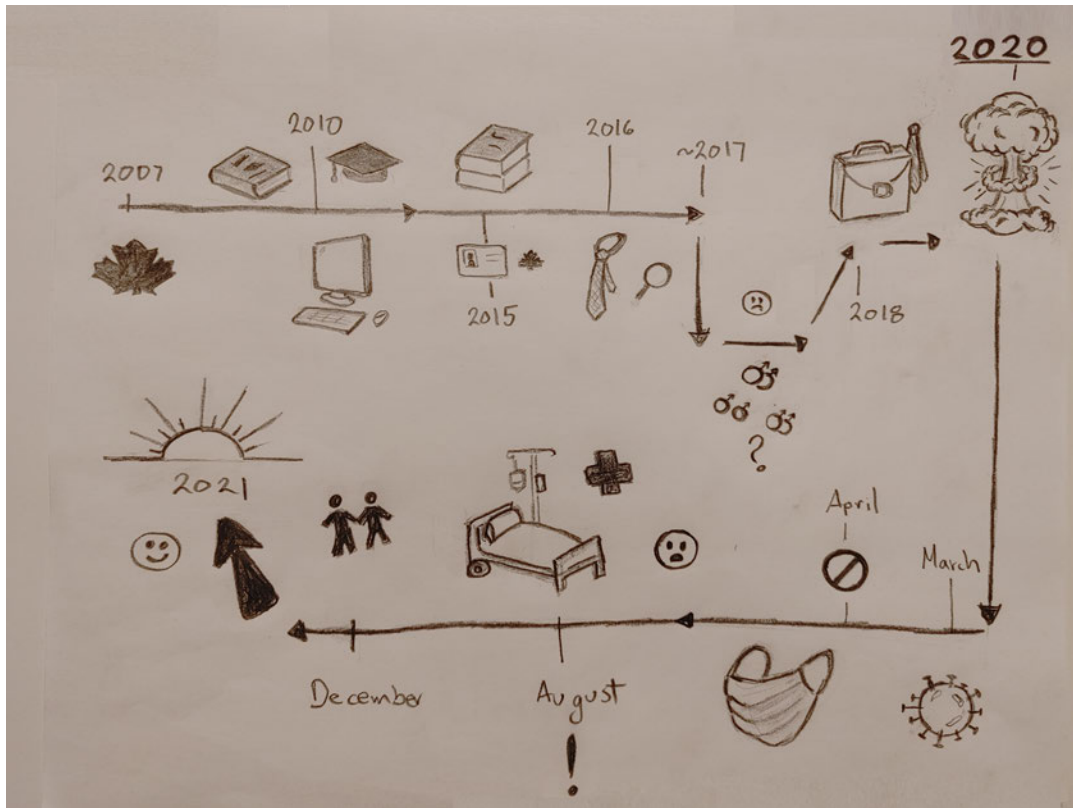 2020
2010
2016
~2017
2007
2015
2018
?
2021
April
March
December
August
!